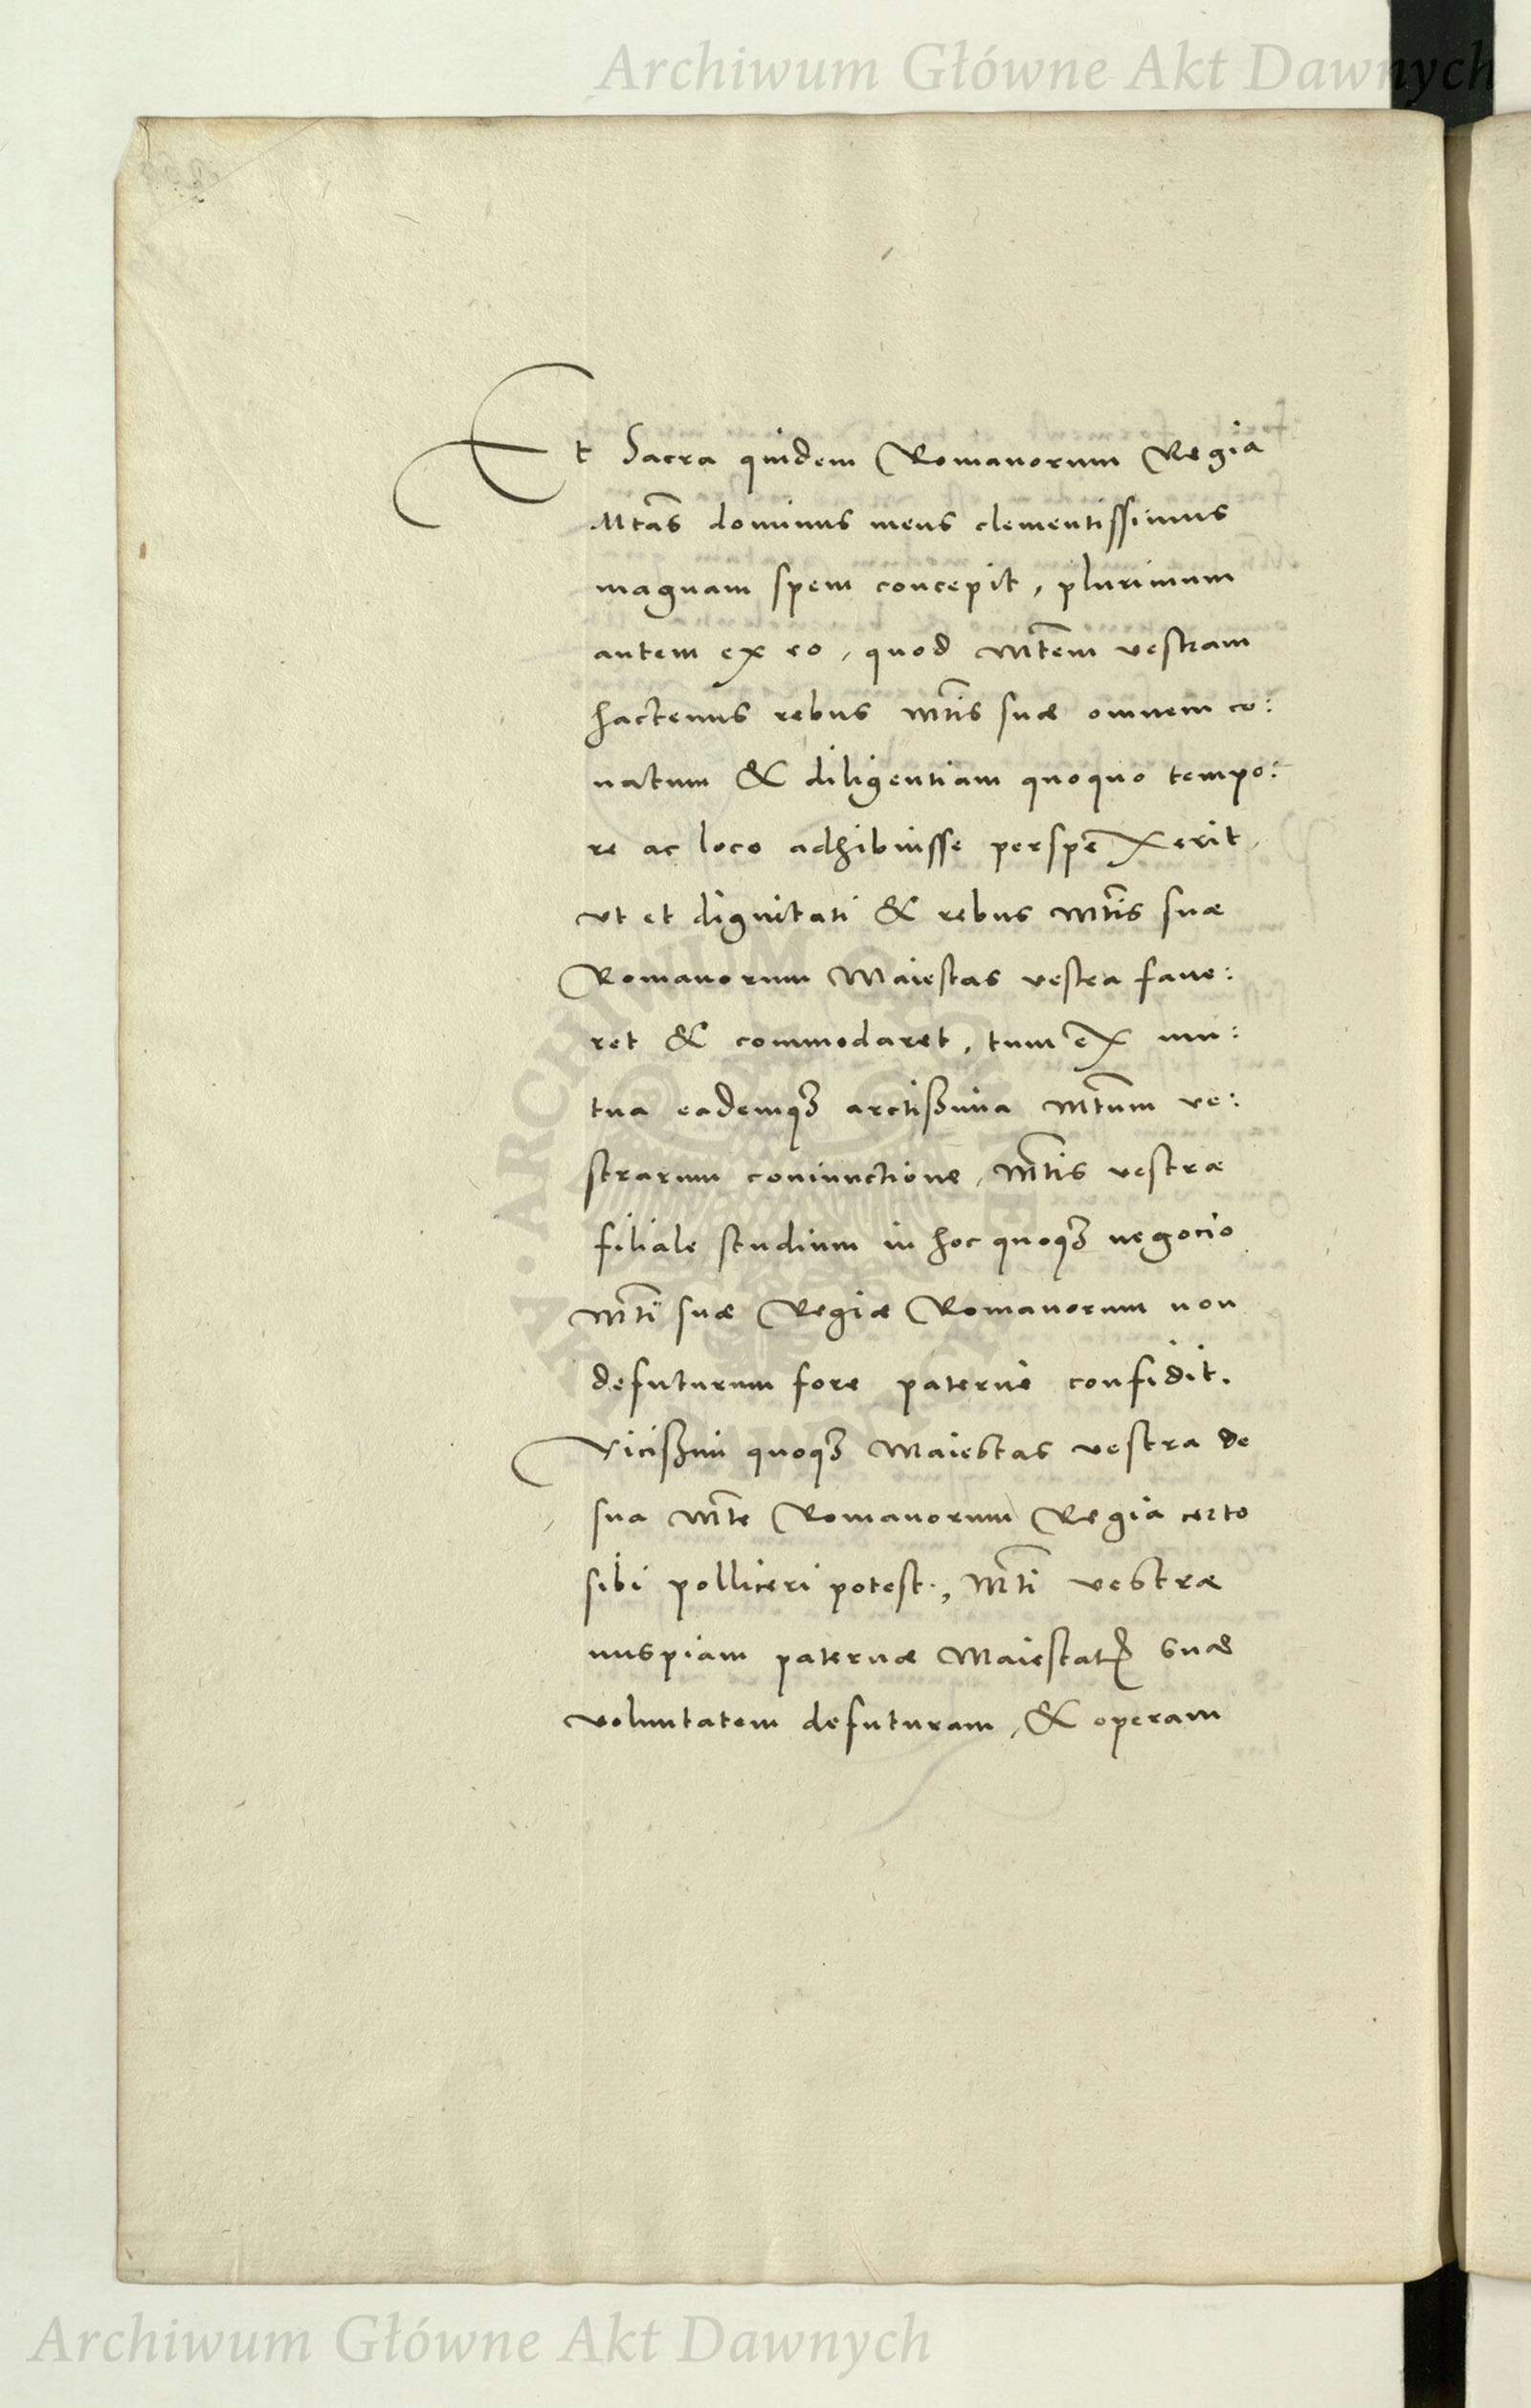 Archiwum Główne Akt Dawnych
Et Sacra quidem Romanorum Regia
Mtas dominus meus clementissimus
magnam spem concepit, plurimum
autem ex eo, quod Mtem vestram
hactenus rebus Mtis suæ omnem co:
natum & diligentiam quoquo tempo:
re ac loco adhibuisse perspexerit,
vt et dignitati & rebus Mtis suæ
Romanorum Maiestas vestra faue:
ret & commodaret, tum ex mu:
tua eademqʒ arctißima Mtum ve:
strarum coniunctione, Mtis vestræ
filiale studium in hoc quoqʒ negocio
Mti suæ Regiæ Romanorum non
defuturum fore paterne confidit.
Vicißim quoqʒ Maiestas vestra de
sua Mte Romanorum Regia certo
sibi polliceri potest, Mti vestræ
nuspiam paternæ Maiestatꝭ suæ
voluntatem defuturam, & operam
Archiwum Główne Akt Dawnych